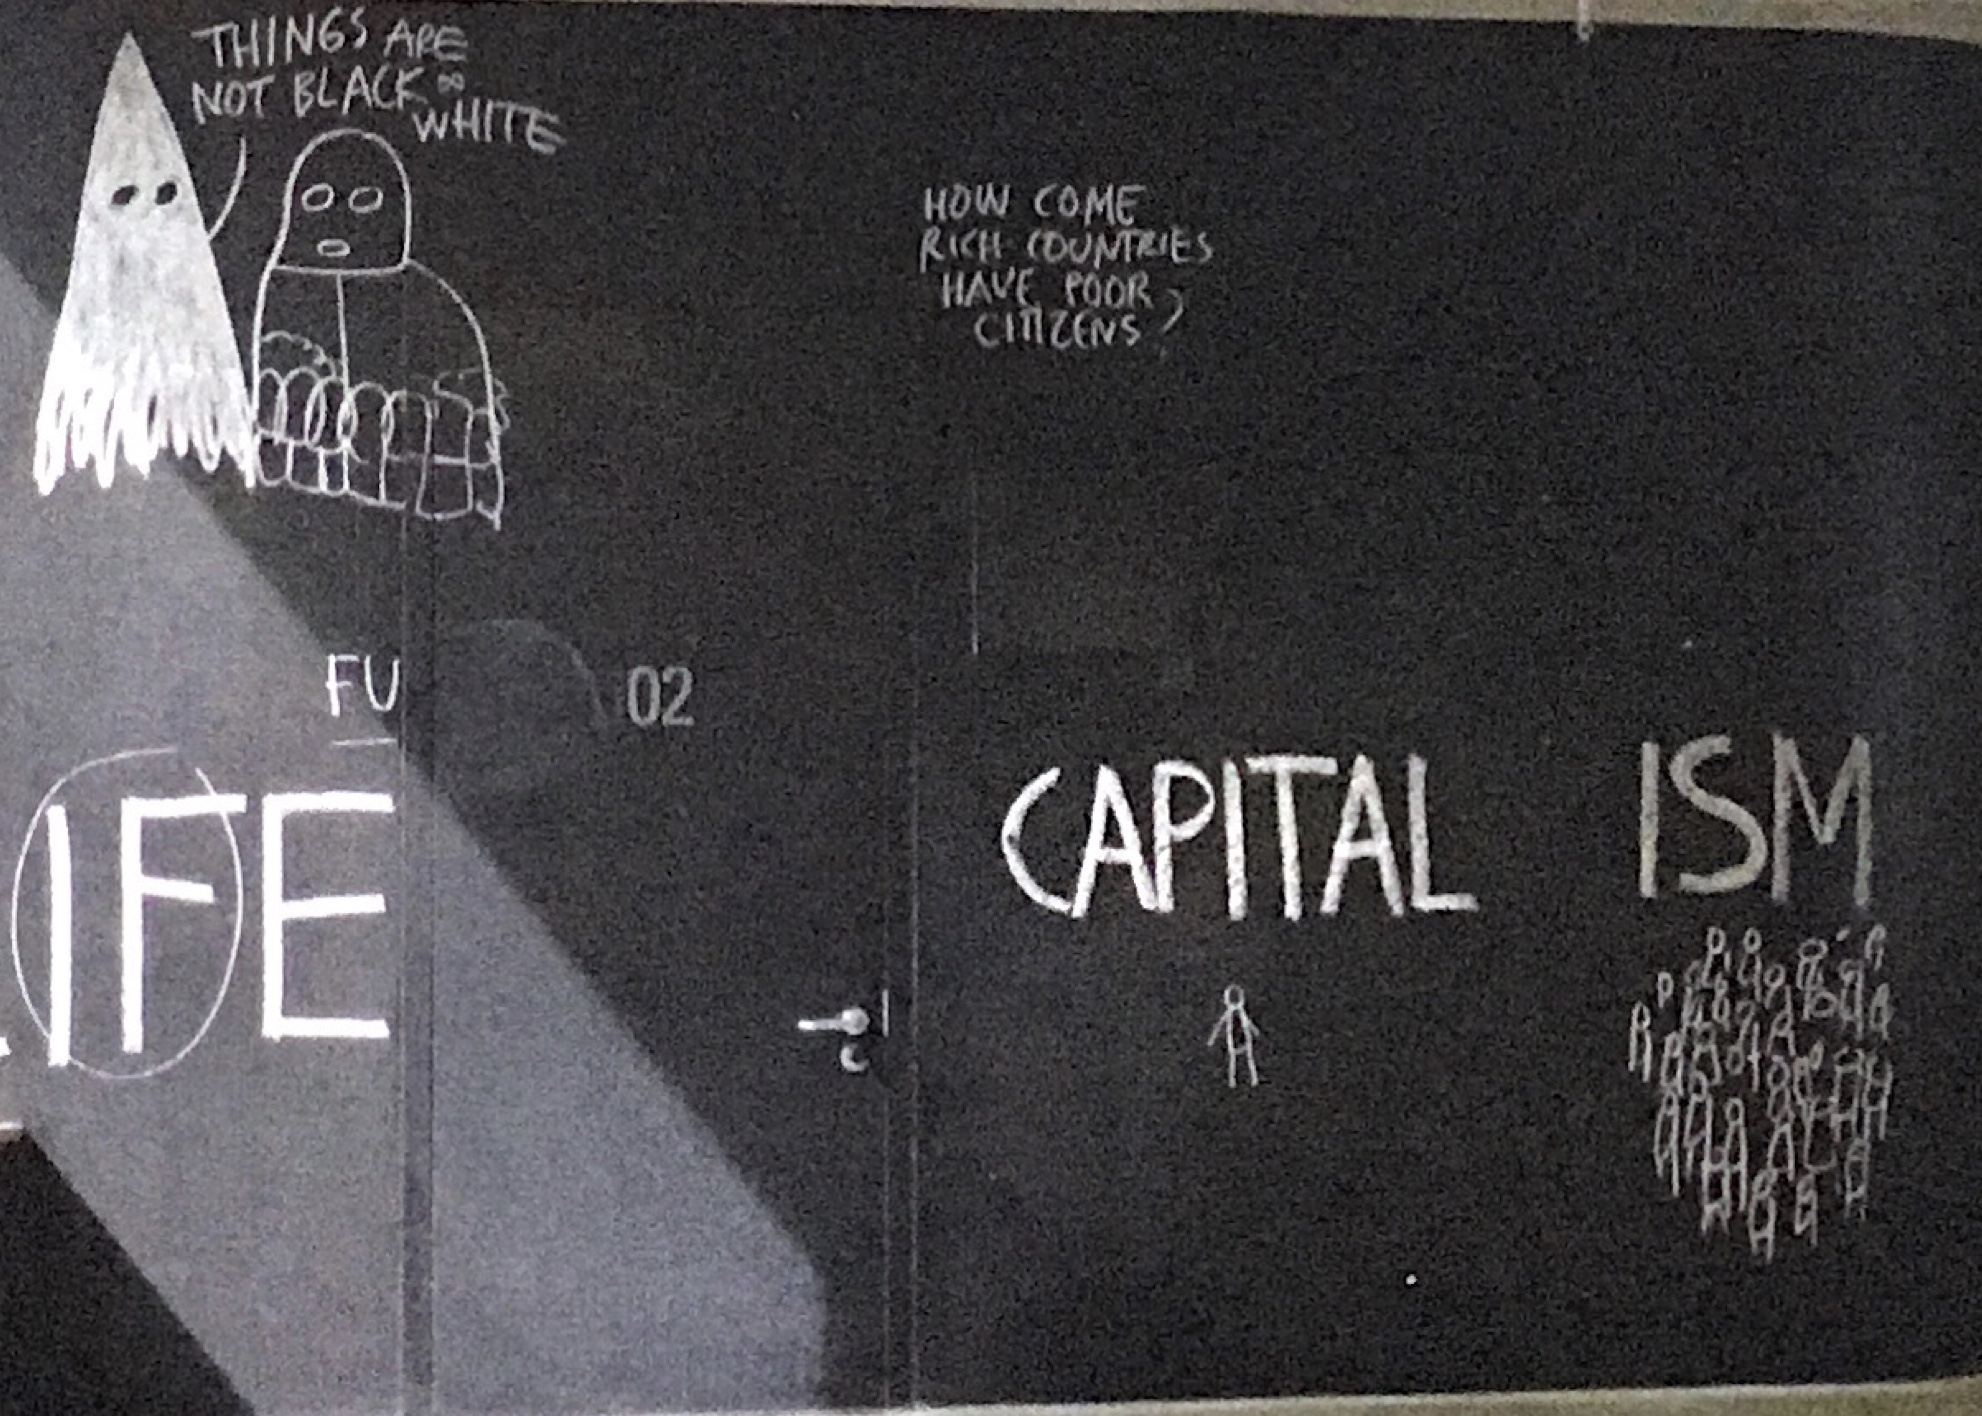 THINGS ARE
NOT BLACK &
WHITE
HOW COME
RICH COUNTRIES
HAVE POOR
CITIZENS?
FU
02
LIFE
CAPITAL ISM